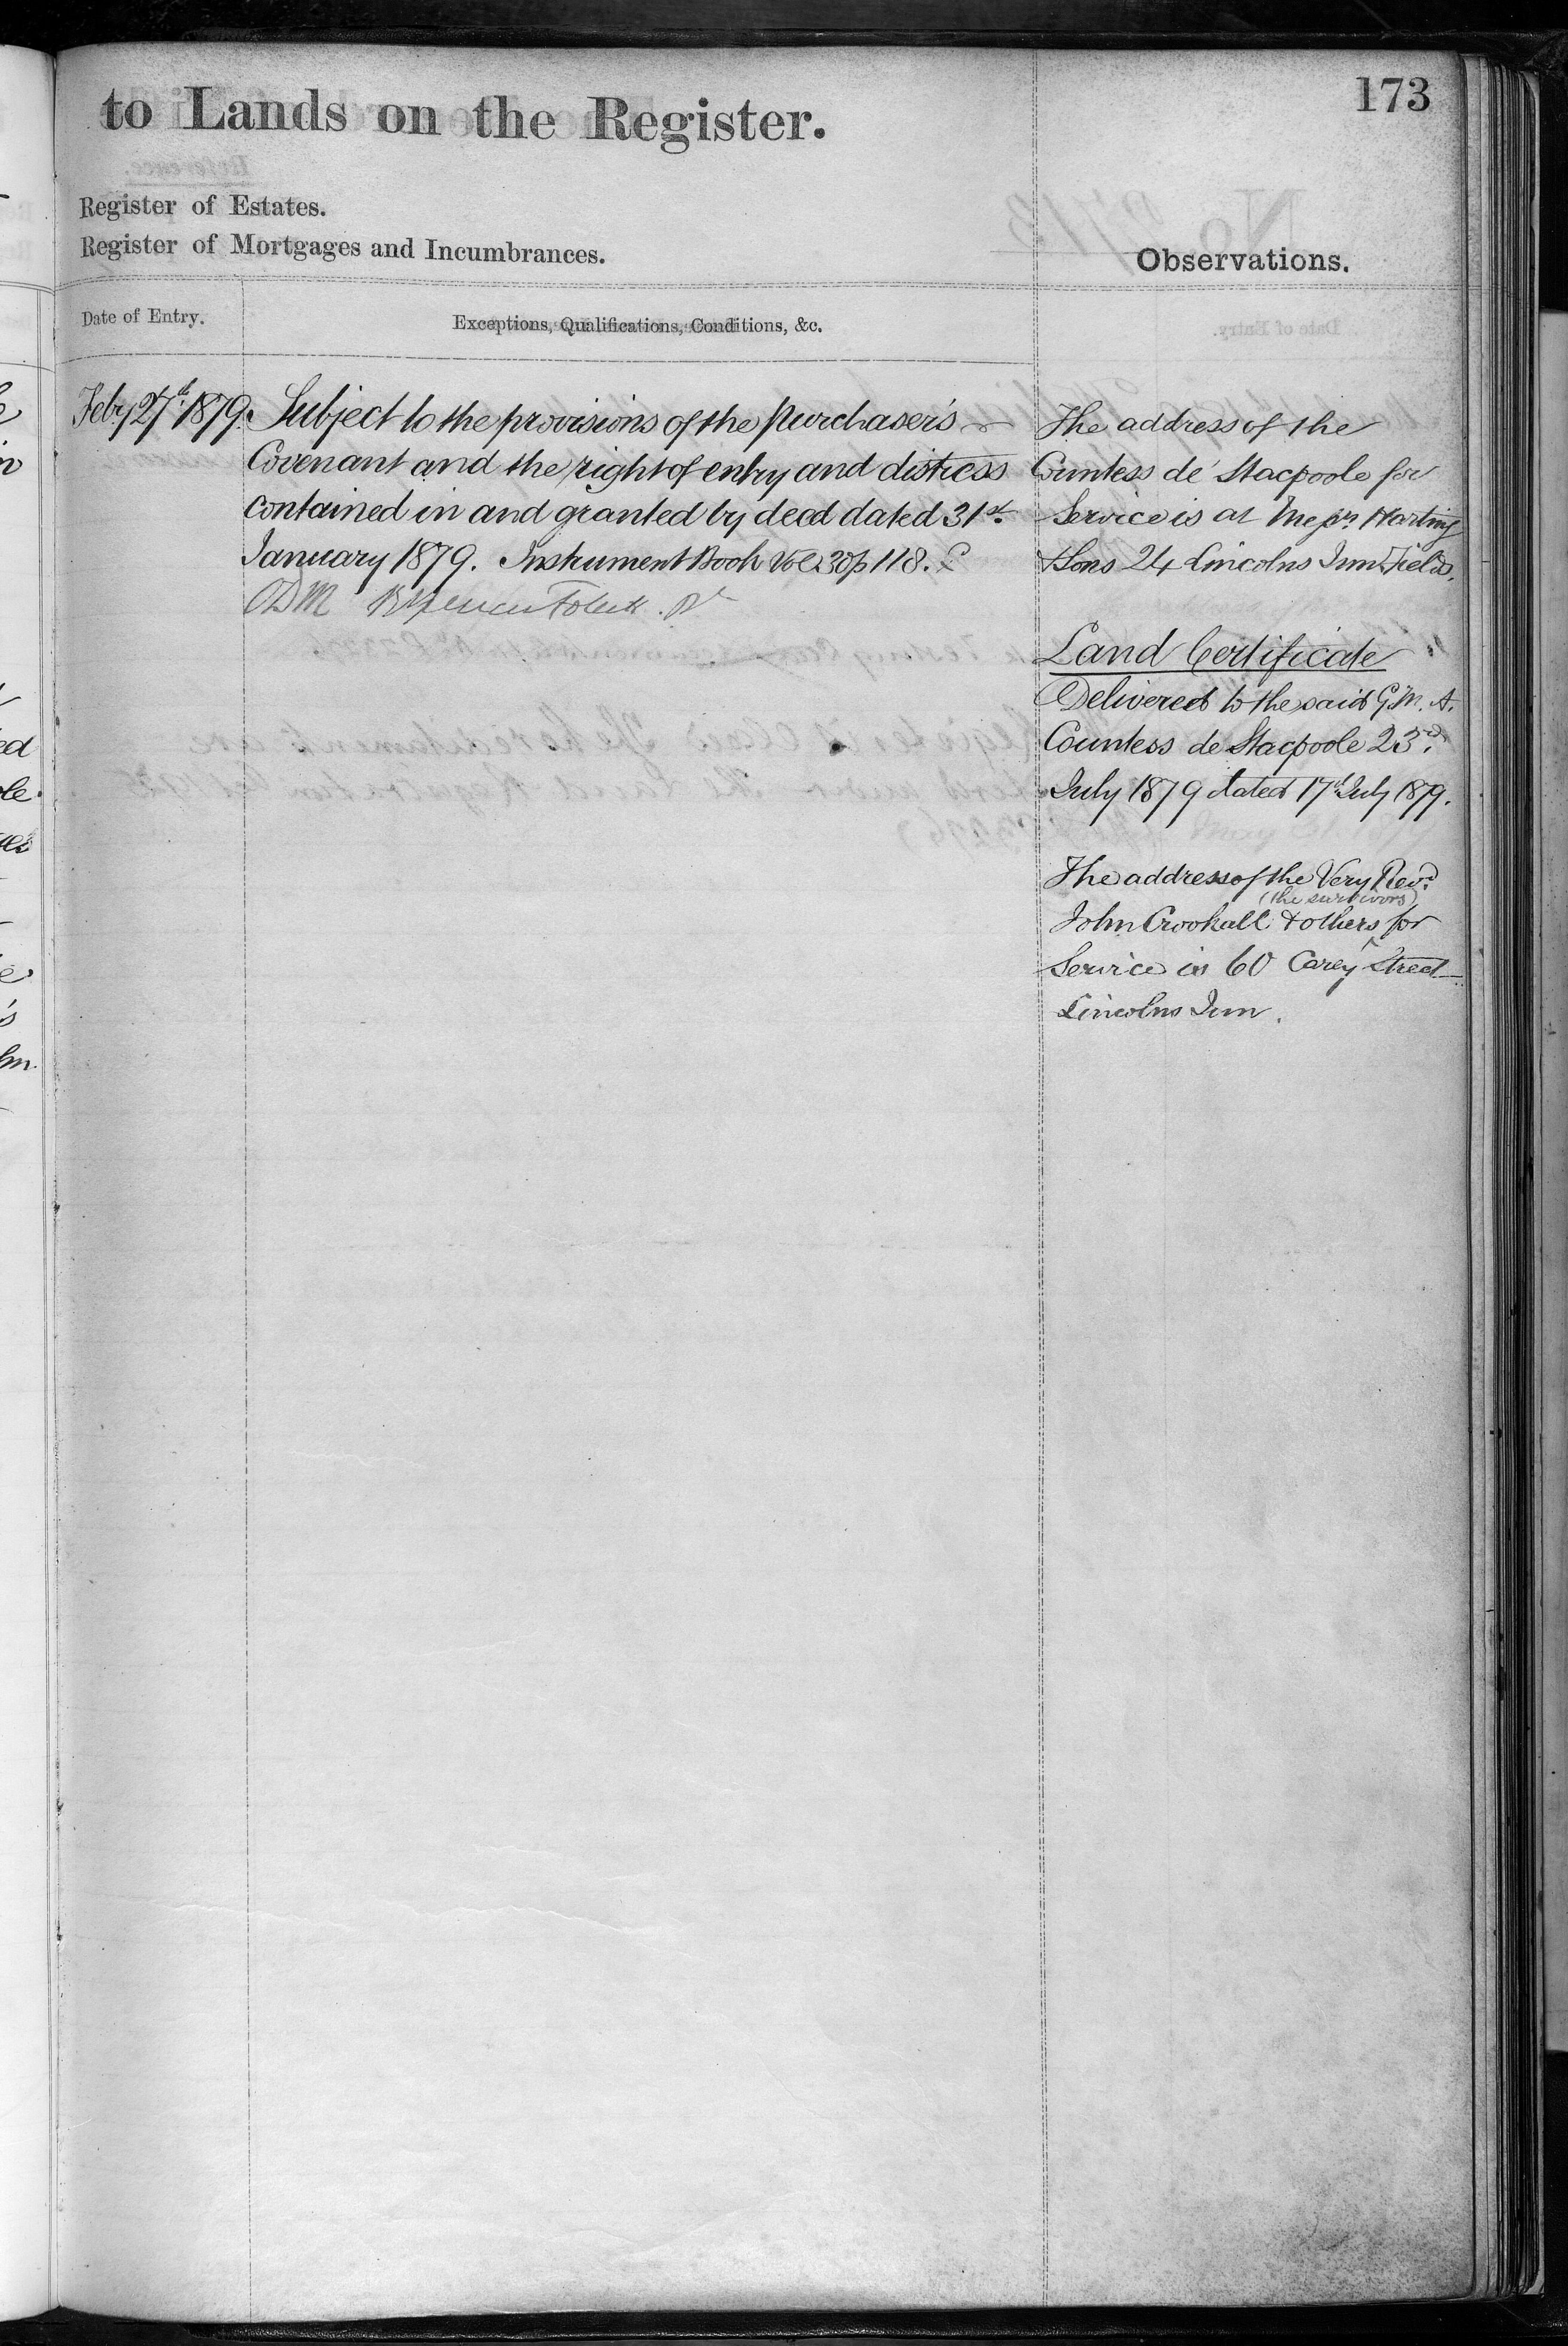 173
to Lands on the Register.
Register of Estates.
Register of Mortgages and Incumbrances.
Observations.
Date of Entry.
Exceptions, Qualifications, Conditions, &c.
Feby 27th 1879.
Subject to the provisions of the purchaser's
Covenant and the right of entry and distress
contained in and granted by deed dated 31st
January 1879. Instrument Book Vol 30 p 118.
The address of the
Countess de Stacpoole for
Service is at Messrs Harting
& Sons 24 Lincolns Inn Fields.
Land Certificate
Delivered to the said G. M. A.
Countess de Stacpoole 23rd
July 1879 dated 17th July 1879.
The address of the Very Revd
(the survivors)
John Crookall & others for
Service is 60 Carey Street
Lincolns Inn.